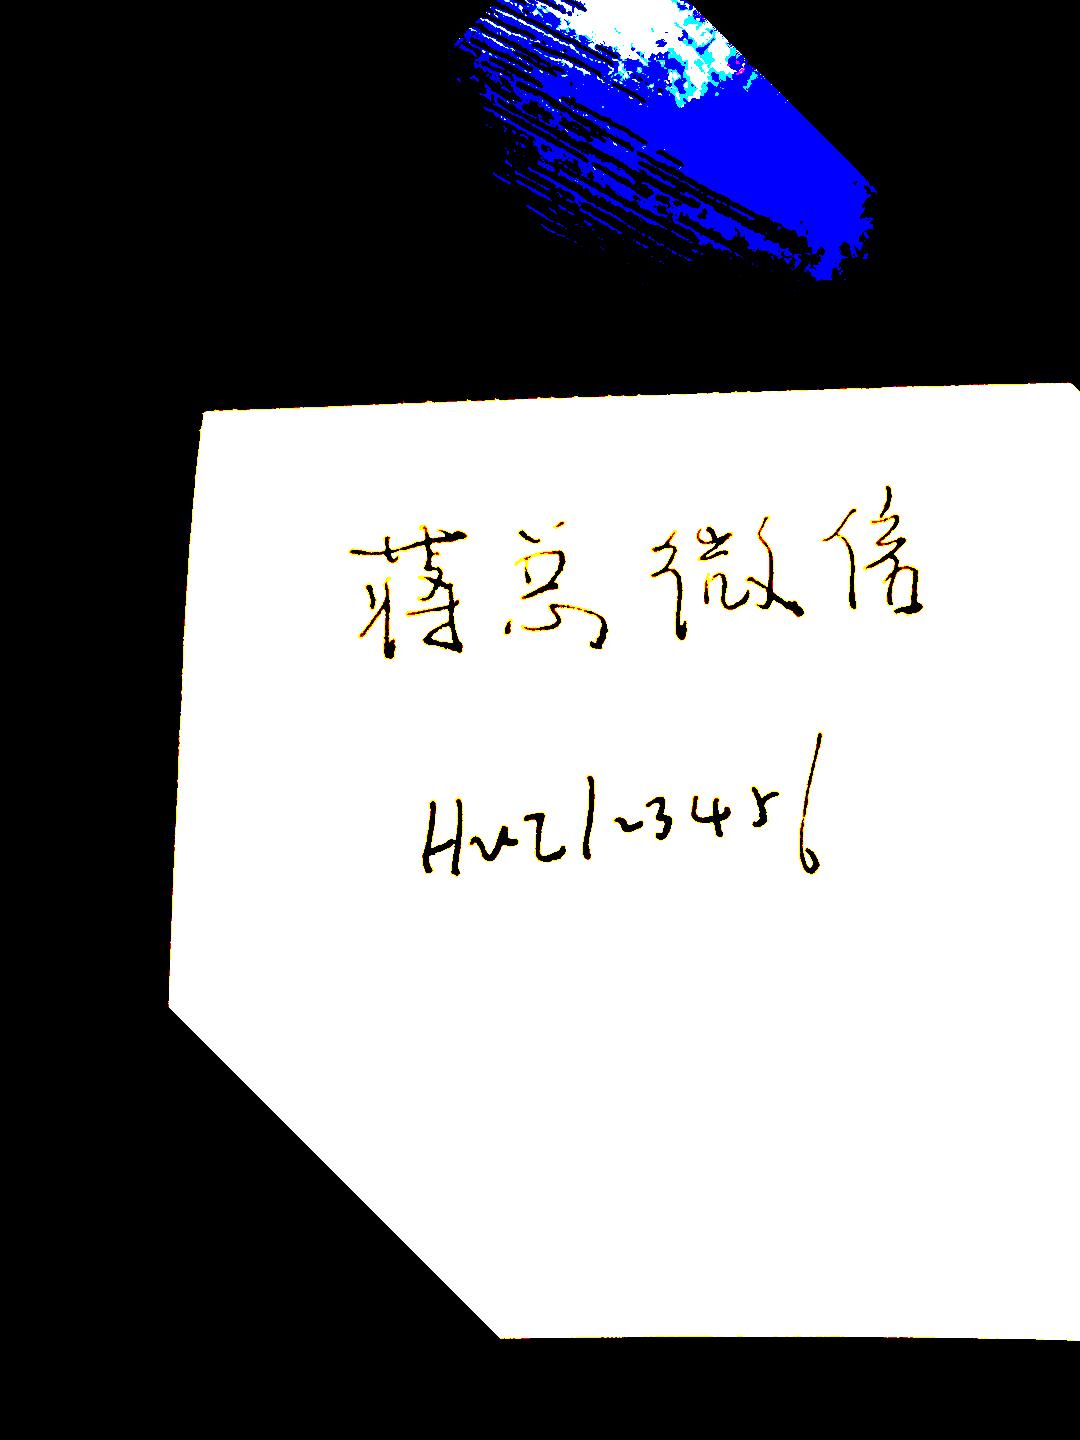 蒋总微信
Huz123456